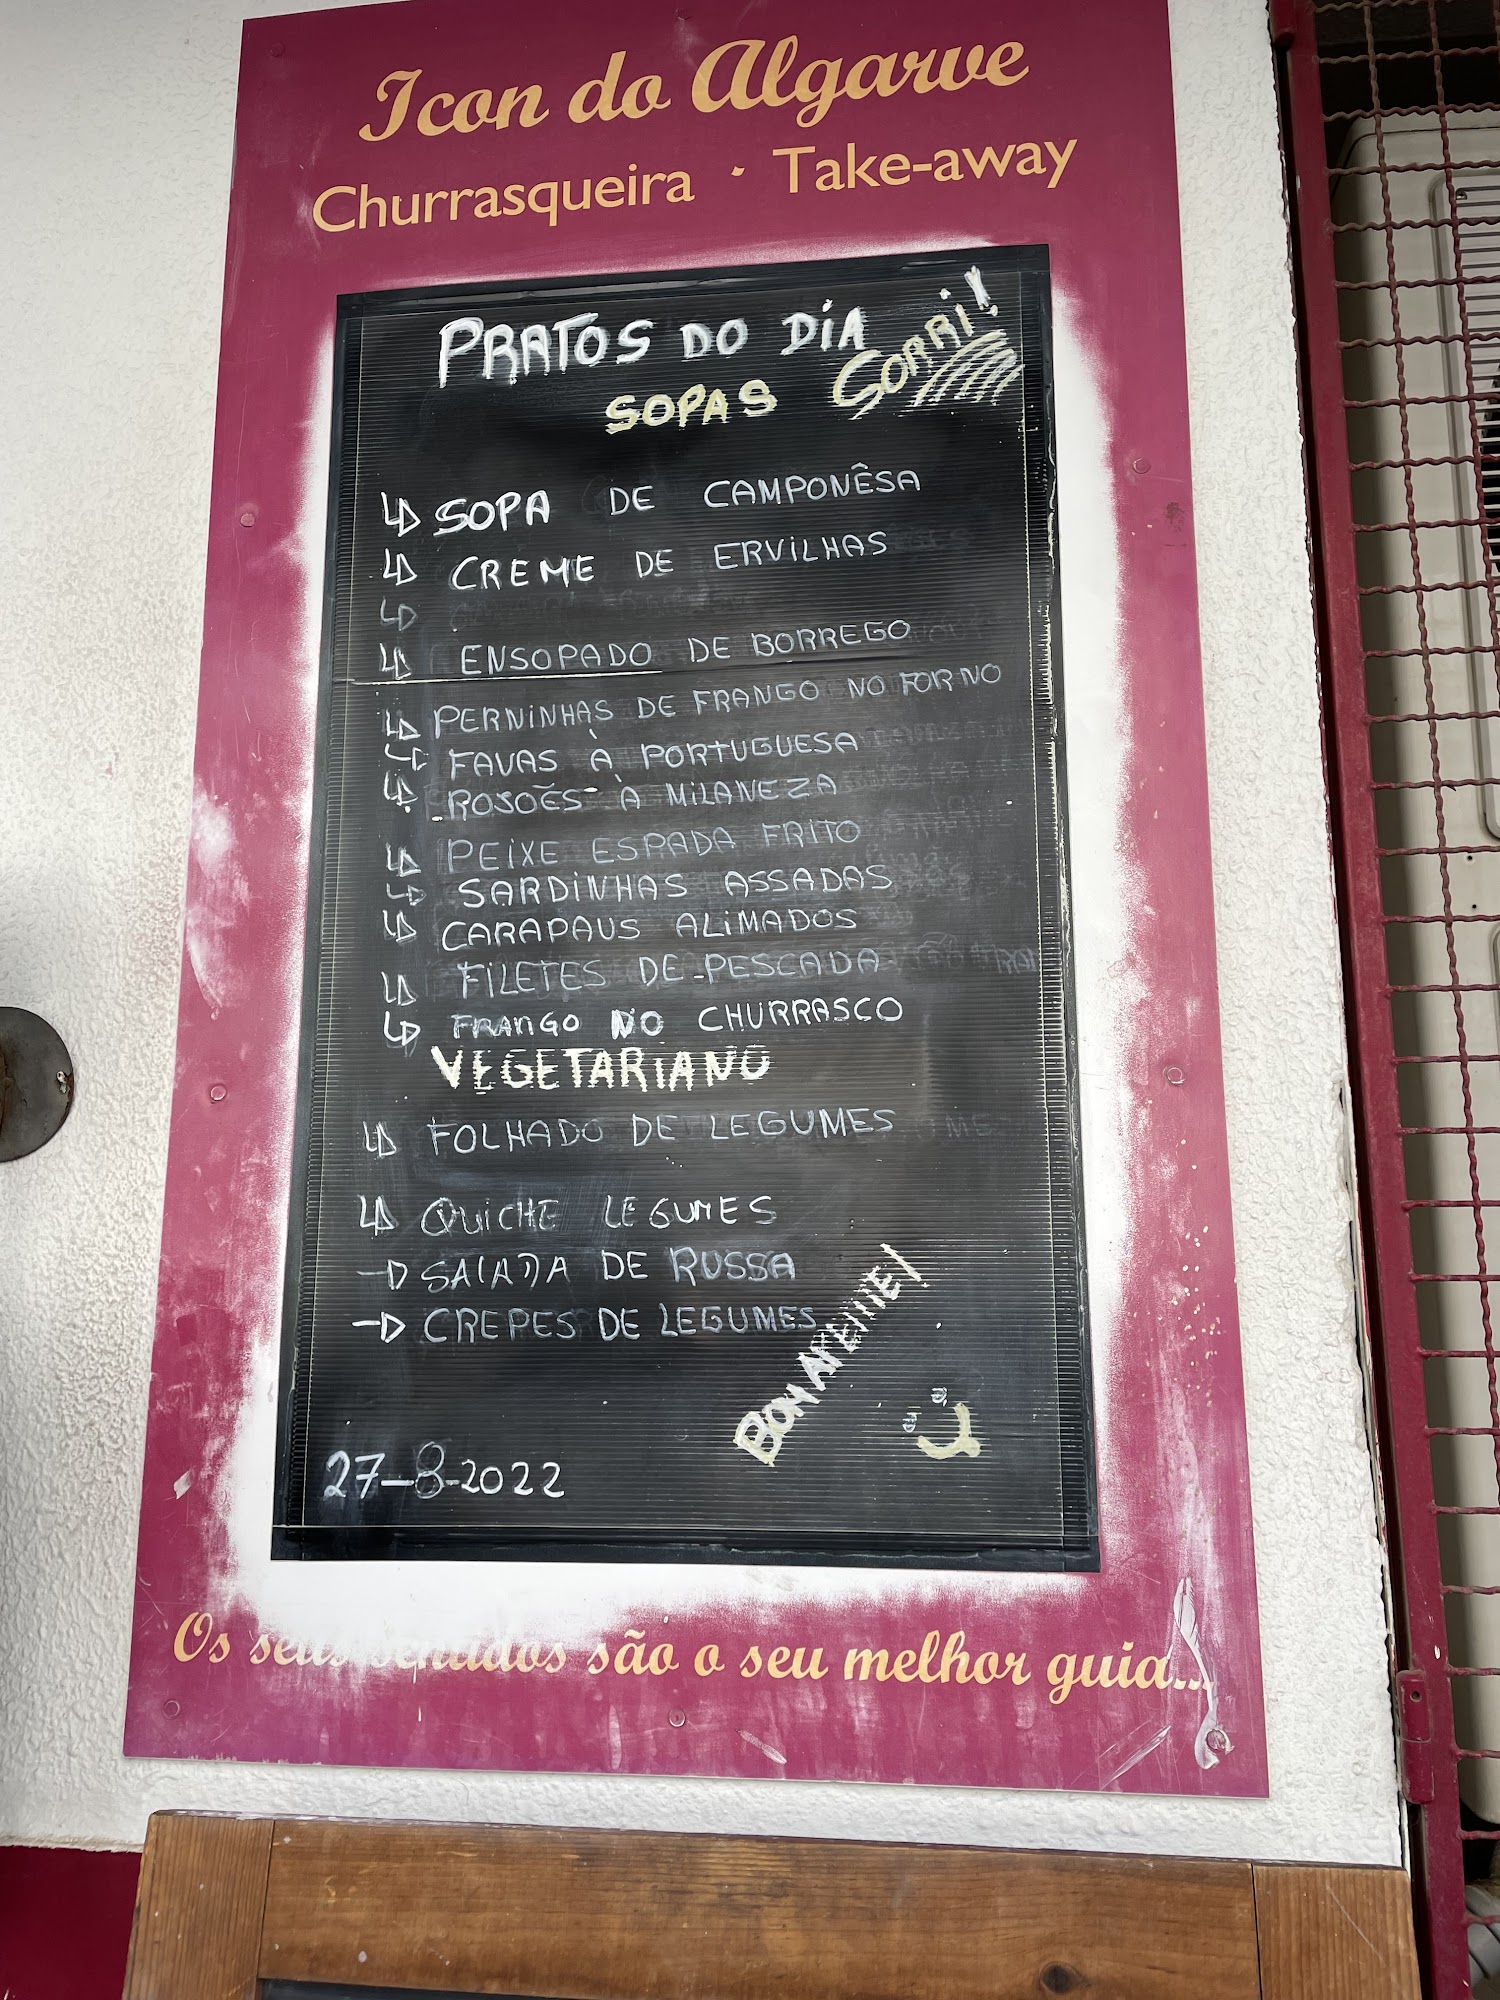 Icon do Algarve
Churrasqueira · Take-away
PRATOS DO DIA
SORRI!
SOPAS
SOPA DE CAMPONÊSA
CREME DE ERVILHAS
ENSOPADO DE BORREGO
PERNINHAS DE FRANGO NO FORNO
FAVAS À PORTUGUESA
ROJOÉS À MILANEZA
PEIXE ESPADA FRITO
SARDINHAS ASSADAS
CARAPAUS ALIMADOS
FILETES DE PESCADA
FRANGO NO CHURRASCO
VEGETARIANO
FOLHADO DE LEGUMES
QUICHE LEGUMES
SALADA DE RUSSA
CREPES DE LEGUMES
BOM APETITE!
27-8-2022
Os seus sentidos são o seu melhor guia...